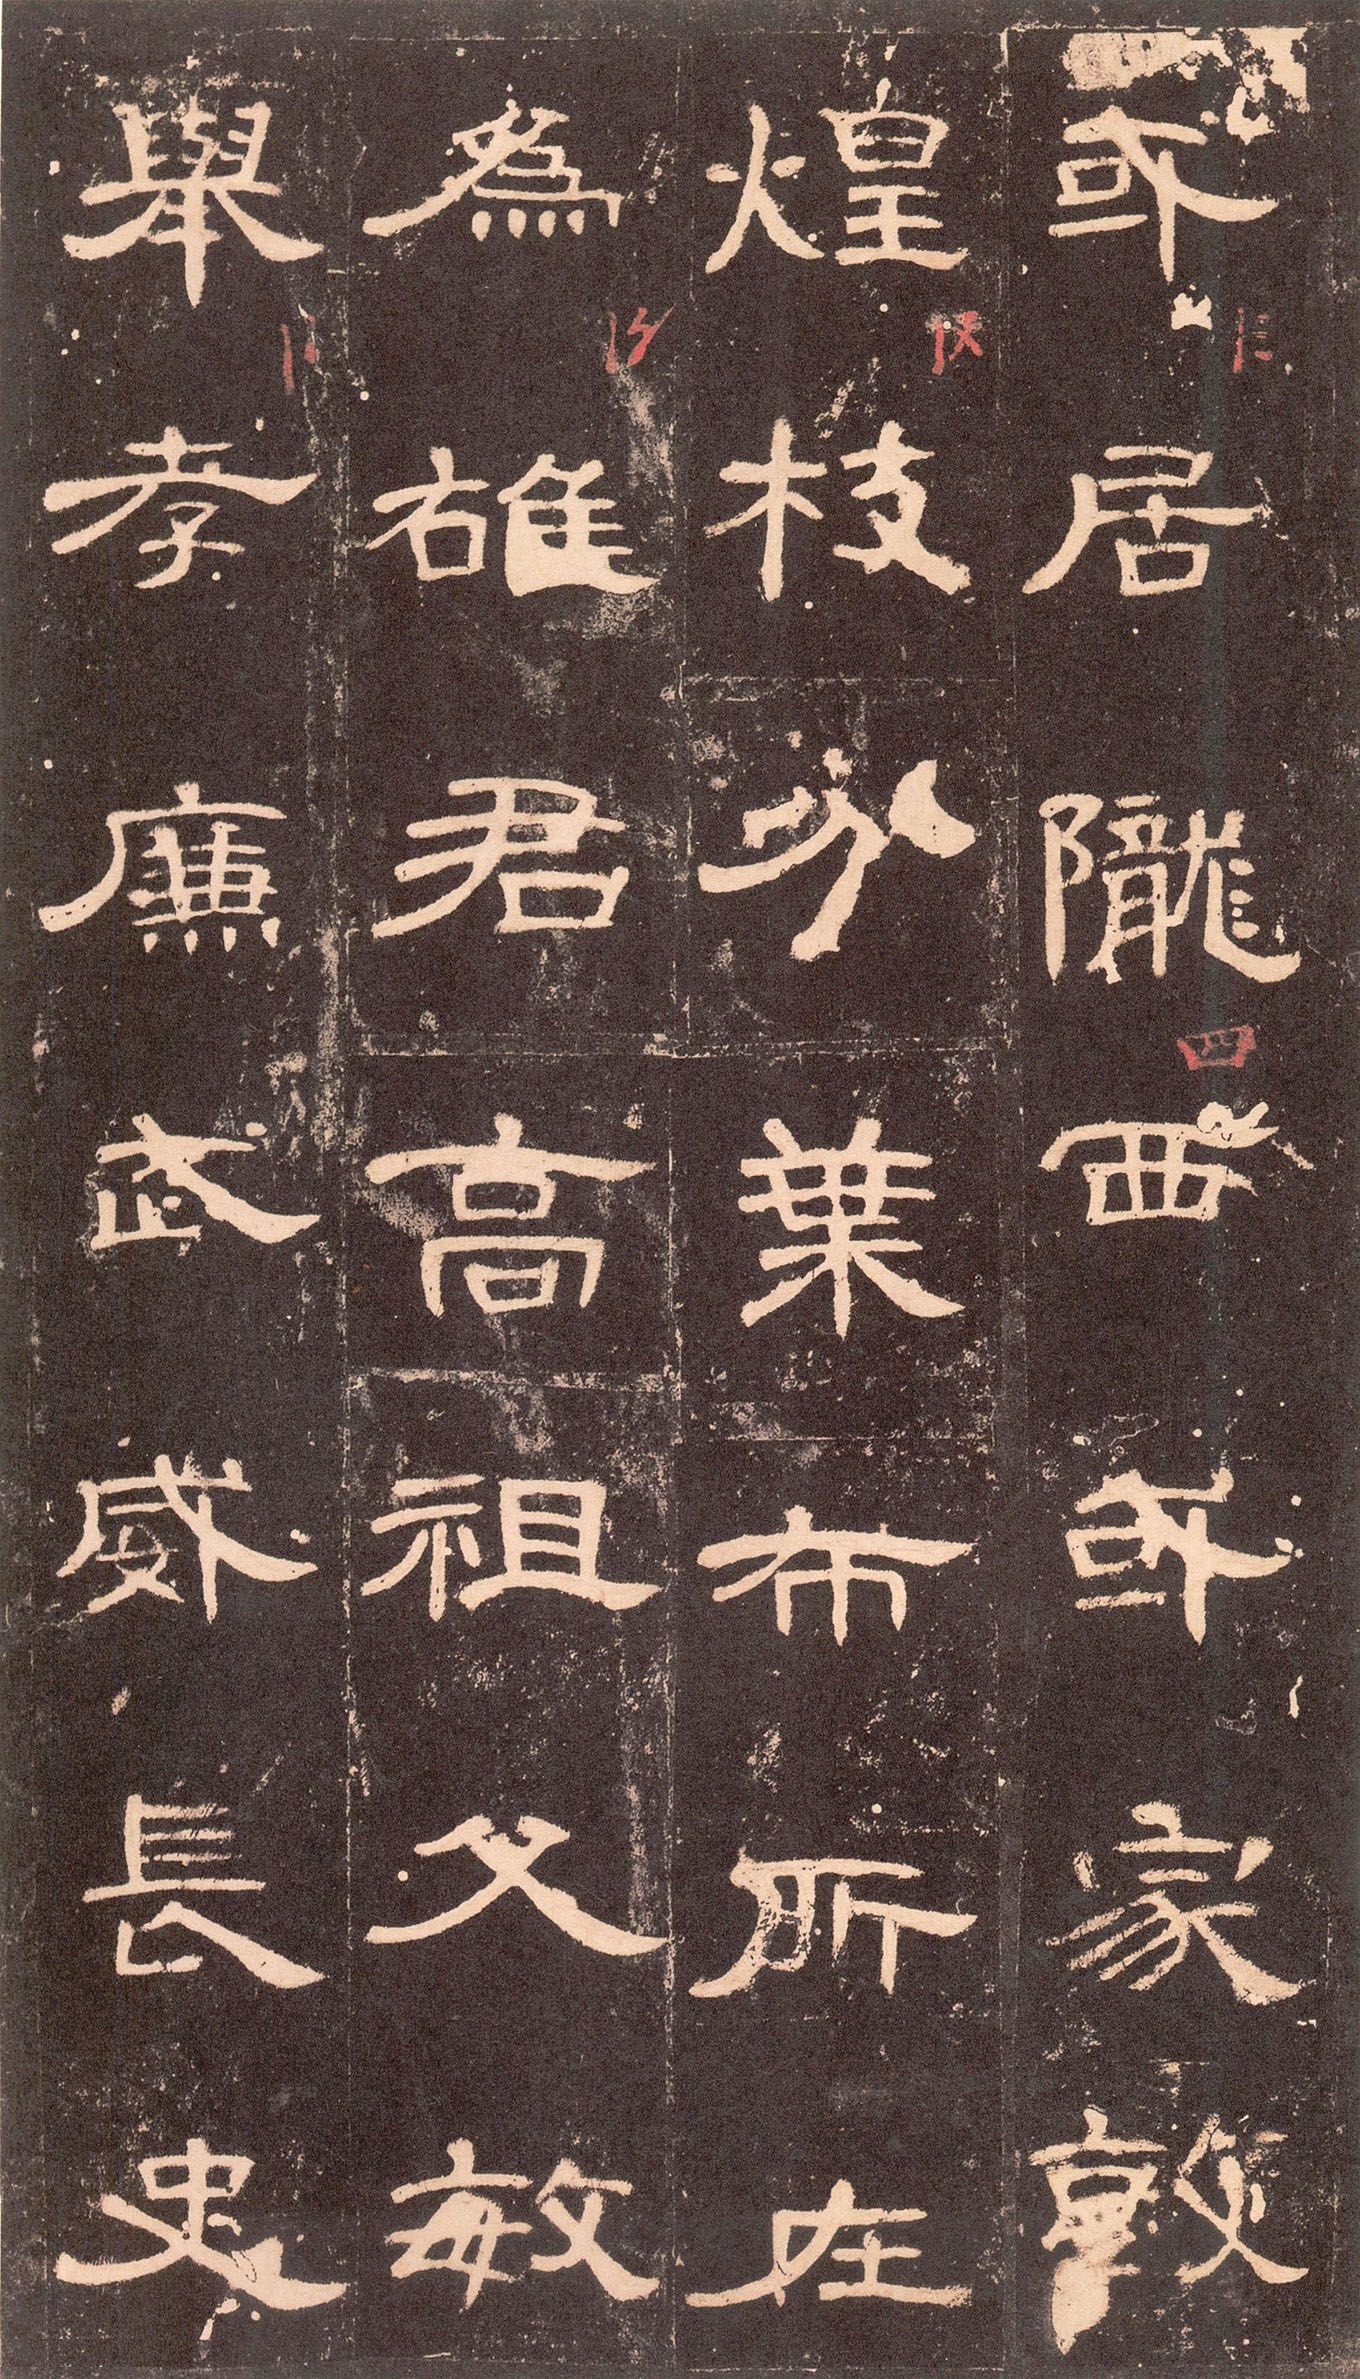 或居隴西或家敦
煌枝分葉布所在
為雄君高祖父敏
舉孝廉武威長史
四